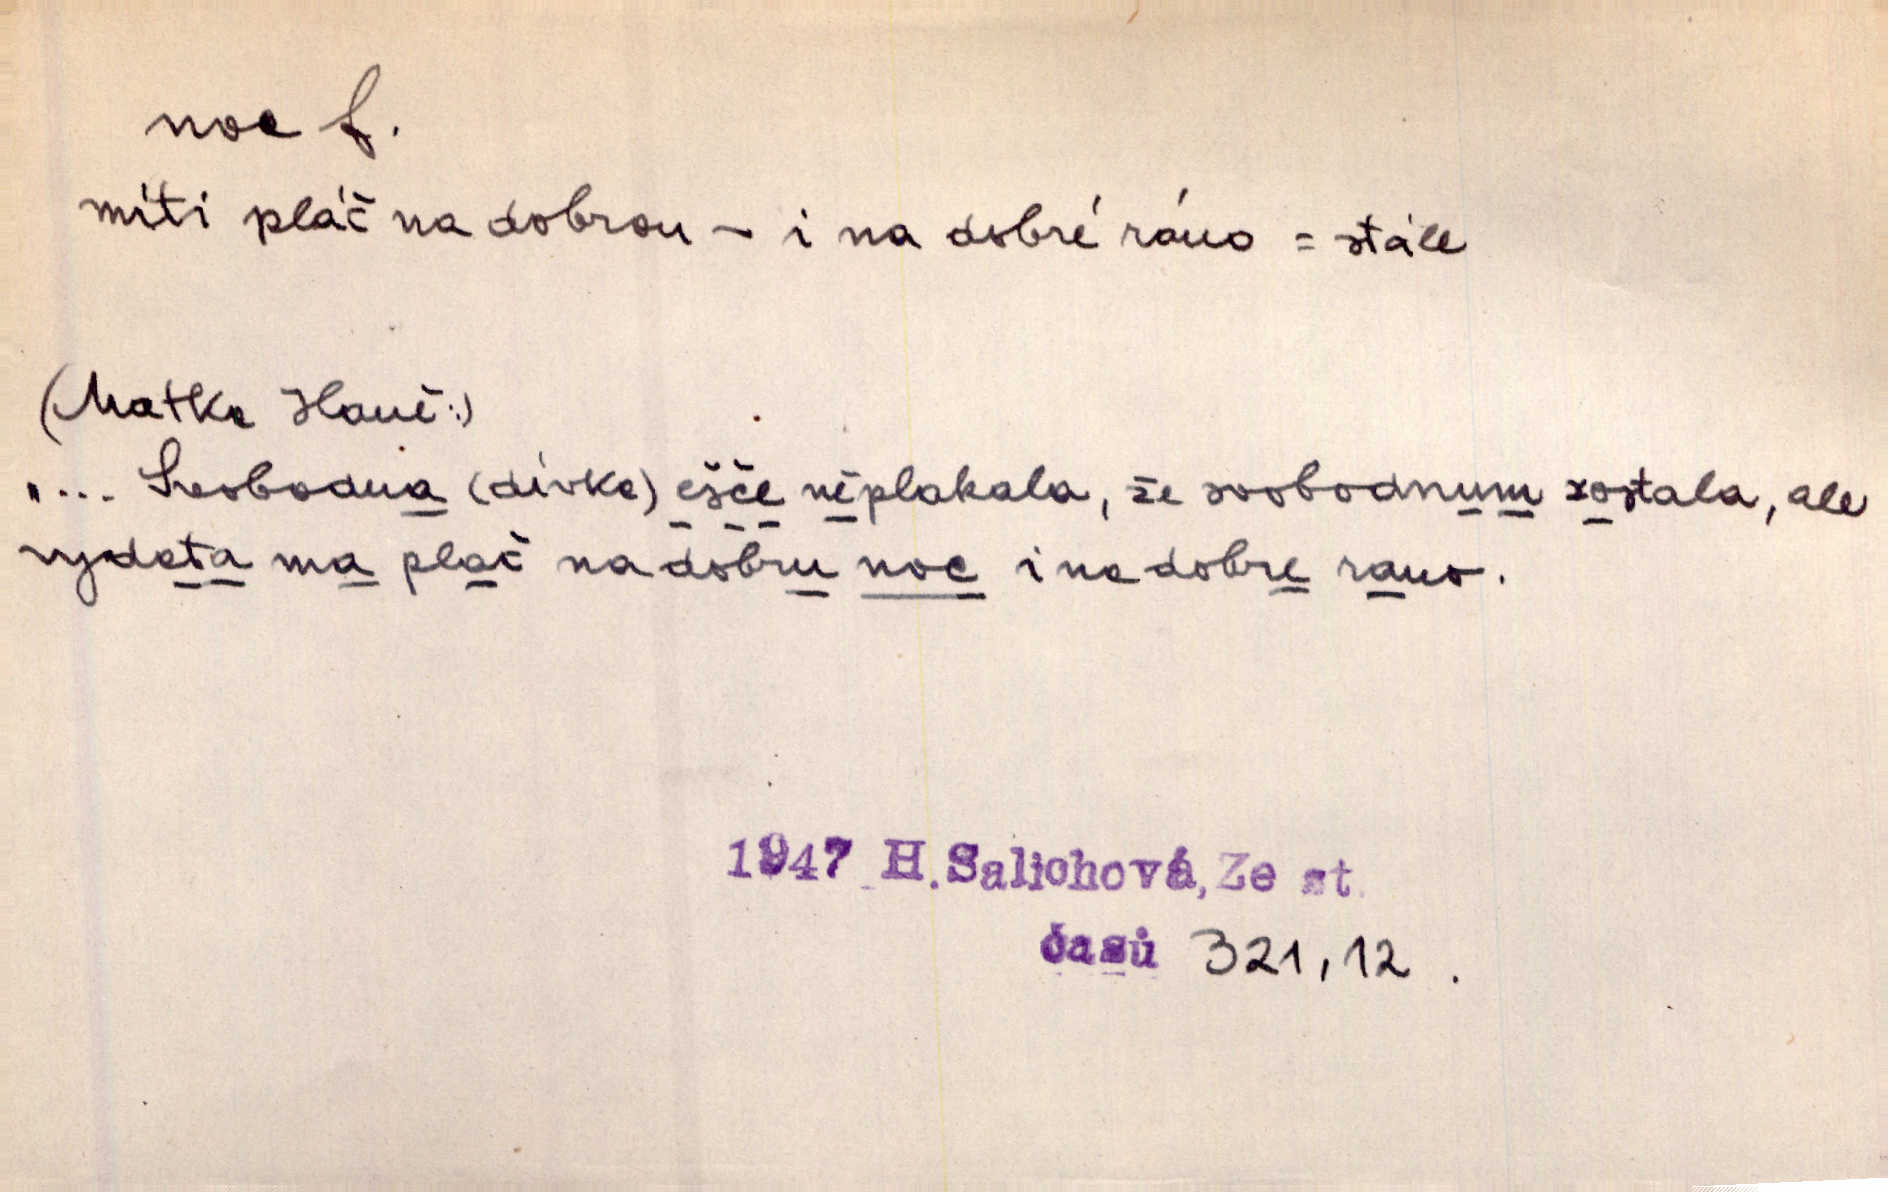 noc f.
míti pláč na dobrou – i na dobré ráno = stále
(Matka Haně:)
„... Svobodna (dívka) ešče něplakala, že svobodnum zostala, ale
vydata ma plač na dobru noc i na dobre rano.
1947 H.Salichová,Ze st.
časů 321,12.